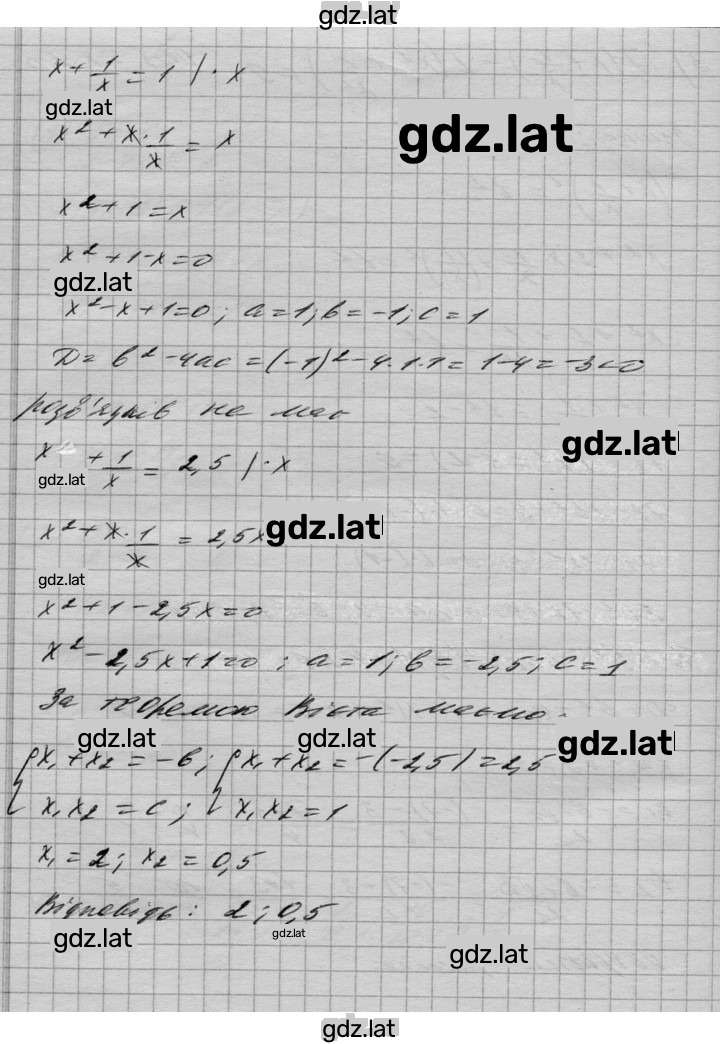 gdz.lat
x + 1/x = 1 | · x
gdz.lat
x² + x · 1/x = x
gdz.lat
x² + 1 = x
x² + 1 - x = 0
gdz.lat
x² - x + 1 = 0; a = 1; b = -1; c = 1
D = b² - 4ac = (-1)² - 4·1·1 = 1 - 4 = -3 < 0
розв'язків не має
gdz.lat
x + 1/x = 2,5 | · x
gdz.lat
x² + x · 1/x = 2,5x
gdz.lat
gdz.lat
x² + 1 - 2,5x = 0
x² - 2,5x + 1 = 0; a = 1; b = -2,5; c = 1
За теоремою Вієта маємо:
gdz.lat gdz.lat gdz.lat
{ x₁ + x₂ = -b; { x₁ + x₂ = -(-2,5) = 2,5
x₁x₂ = c; x₁x₂ = 1
x₁ = 2; x₂ = 0,5
Відповідь: 2; 0,5
gdz.lat gdz.lat gdz.lat
gdz.lat